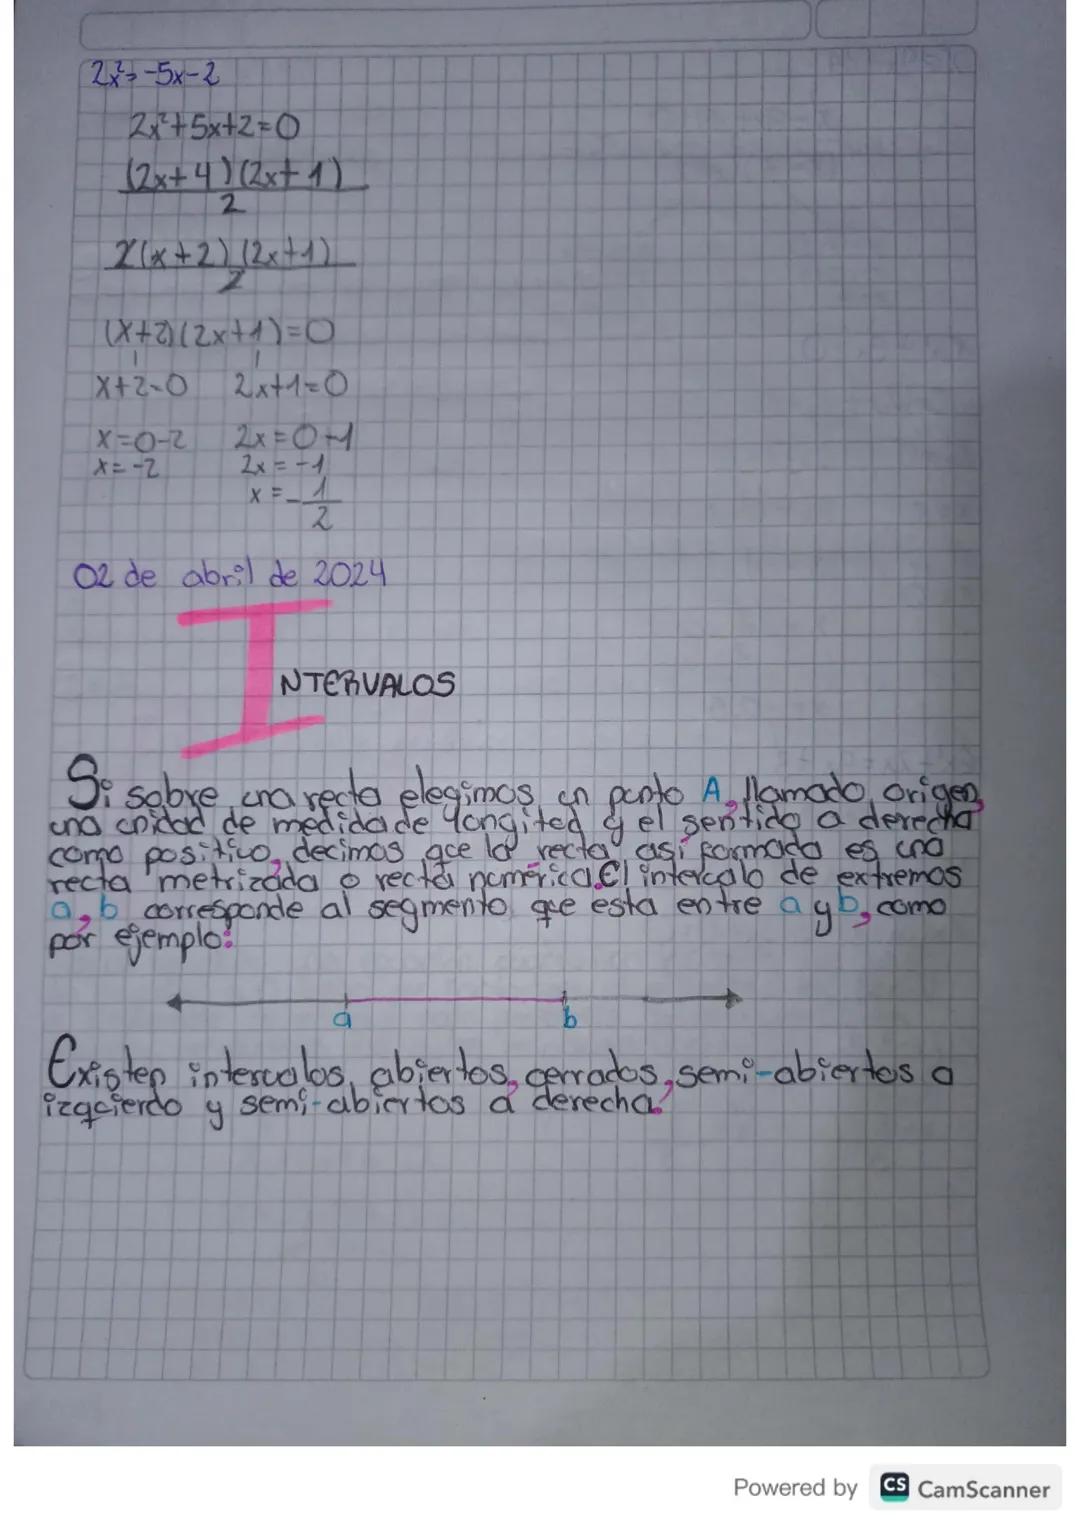 2x²=-5x-2
2x²+5x+2=0
(2x+4)(2x+1)
2
2(x+2)(2x+1)
2
(x+2)(2x+1)=0
x+2=0 2x+1=0
x=0-2 2x=0-1
x=-2 2x=-1
x=-1
2
02 de abril de 2024
INTERVALOS
Si sobre una recta elegimos un punto A, llamado origen,
una unidad de medida de longitud y el sentido a derecha
como positivo, decimos que la recta así formada es una
recta metrizada o recta numérica. El intervalo de extremos
a, b corresponde al segmento que esta entre a y b, como
por ejemplo:
a b
Existen intervalos, abiertos, cerrados, semi-abiertos a
izquierdo y semi-abiertos a derecha.
Powered by CS CamScanner